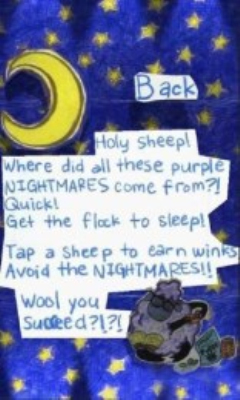 Back
Holy Sheep!
Where did all these purple
NIGHTMARES come from?!
Quick!
Get the flock to sleep!
Tap a sheep to earn winks
Avoid the NIGHTMARES!!
Wool you
Succeed?!?!